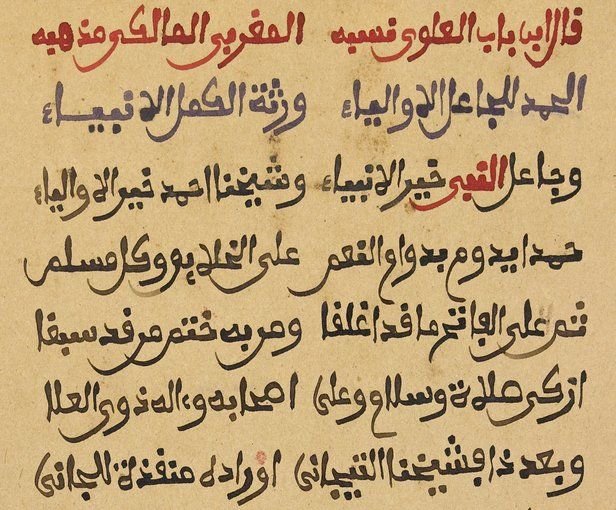 قال ابن باب العلوي نسبه المغربي المالكي مذهبه
الحمد للجاعل الاولياء ورثة الكمل الانبياء
وجاعل النبي خير الانبياء وشيخنا احمد خير الاولياء
حمدا يدوم بدوام النعم على الخلايق وكل مسلم
ثم على الفاتح ما قد اغلقا ومن به ختم من قد سبقا
ازكى صلاة وسلام وعلى اصحابه وءاله ذوي العلا
وبعد ذا فشيخنا التيجاني اوراده منقذة للجاني